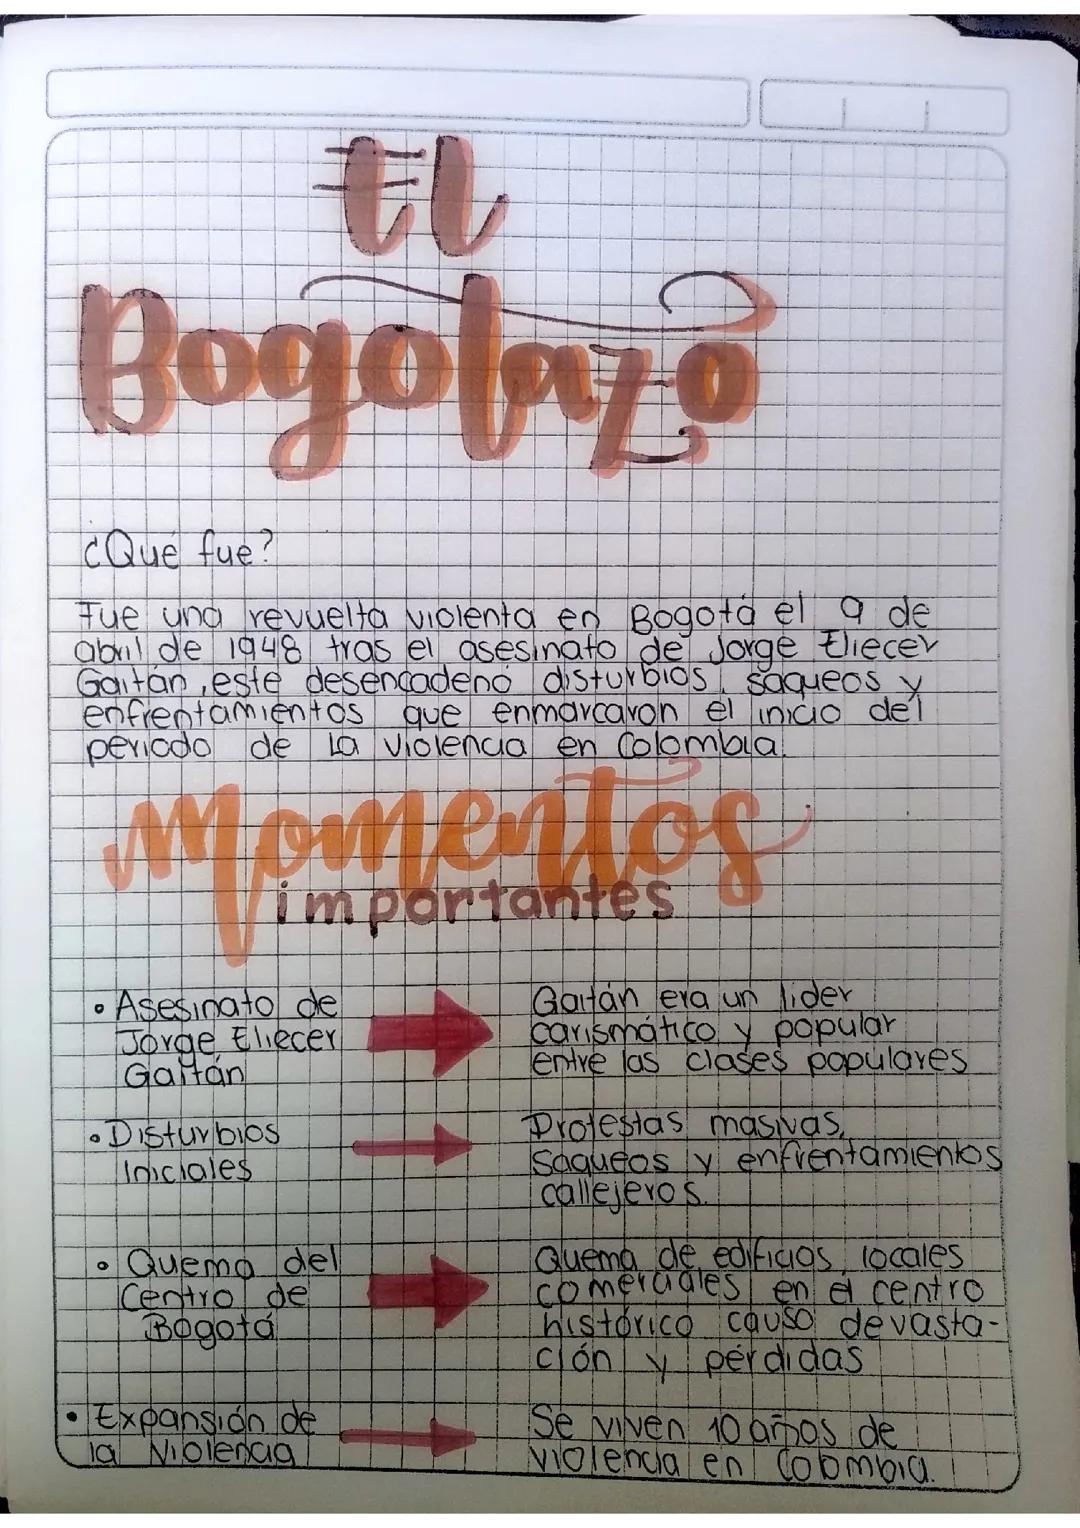 El
Bogotazo
¿Qué fue?
Fue una revuelta violenta en Bogotá el 9 de
abril de 1948 tras el asesinato de Jorge Eliecer
Gaitán, este desencadenó disturbios, saqueos y
enfrentamientos que enmarcaron el inicio del
periodo de La violencia en Colombia.
Momentos
importantes
• Asesinato de
Jorge Eliecer
Gaitán
Gaitán era un lider
carismático y popular
entre las clases populares
• Disturbios
Iniciales
Protestas masivas,
saqueos y enfrentamientos
callejeros.
• Quema del
Centro de
Bogotá
Quema de edificios, locales
comerciales en el centro
histórico causo devasta-
ción y pérdidas
• Expansión de
la Violencia
Se viven 10 años de
violencia en Colombia.